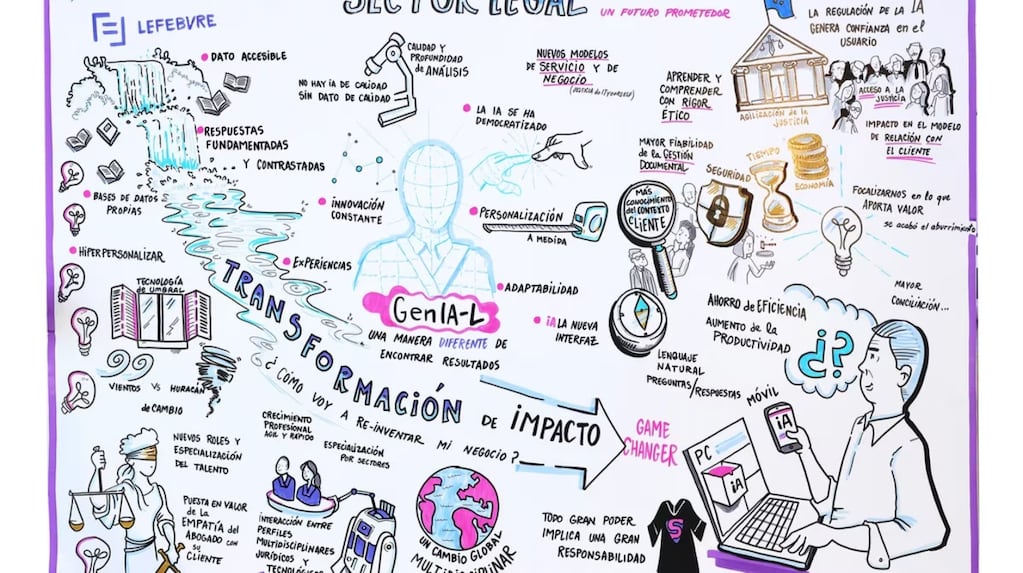 SECTOR LEGAL
UN FUTURO PROMETEDOR
LEFEBVRE
DATO ACCESIBLE
CALIDAD Y
PROFUNDIDAD
de ANÁLISIS
NO HAY IA DE CALIDAD
SIN DATO DE CALIDAD
NUEVOS MODELOS
DE SERVICIO Y DE
NEGOCIO
LA REGULACIÓN DE LA IA
GENERA CONFIANZA EN EL
USUARIO
ACCESO A LA
JUSTICIA
APRENDER Y
COMPRENDER
CON RIGOR
ÉTICO
AGILIZACIÓN de LA
JUSTICIA
IMPACTO EN EL MODELO
DE RELACIÓN CON
EL CLIENTE
LA IA SE HA
DEMOCRATIZADO
RESPUESTAS
FUNDAMENTADAS
Y CONTRASTADAS
MAYOR FIABILIDAD
de la GESTIÓN
DOCUMENTAL
SEGURIDAD
TIEMPO
ECONOMÍA
BASES DE DATOS
PROPIAS
INNOVACIÓN
CONSTANTE
PERSONALIZACIÓN
A MEDIDA
MÁS
CONOCIMIENTO
DEL CONTEXTO
CLIENTE
FOCALIZARNOS EN LO QUE
APORTA VALOR
se acabó el aburrimiento
HIPERPERSONALIZAR
EXPERIENCIAS
ADAPTABILIDAD
MAYOR
CONCILIACIÓN...
TECNOLOGÍA
de UMBRAL
GenIA-L
UNA MANERA DIFERENTE DE
ENCONTRAR RESULTADOS
iA LA NUEVA
INTERFAZ
AHORRO de EFICIENCIA
AUMENTO de la
PRODUCTIVIDAD
¿?
LENGUAJE
NATURAL
PREGUNTAS/RESPUESTAS
VIENTOS VS HURACÁN
de CAMBIO
TRANSFORMACIÓN DE IMPACTO
¿CÓMO VOY A RE-INVENTAR MI NEGOCIO?
GAME
CHANGER
MÓVIL
iA
PC
iA
NUEVOS ROLES Y
ESPECIALIZACIÓN
DEL TALENTO
CRECIMIENTO
PROFESIONAL
AGIL Y RÁPIDO
ESPECIALIZACIÓN
POR SECTORES
PUESTA EN VALOR
de LA
EMPATÍA del
ABOGADO CON
SU
CLIENTE
INTERACCIÓN ENTRE
PERFILES
MULTIDISCIPLINARES
JURÍDICOS Y
TECNOLÓGICOS
UN CAMBIO GLOBAL
MULTIDISCIPLINAR
TODO GRAN PODER
IMPLICA UNA GRAN
RESPONSABILIDAD
S